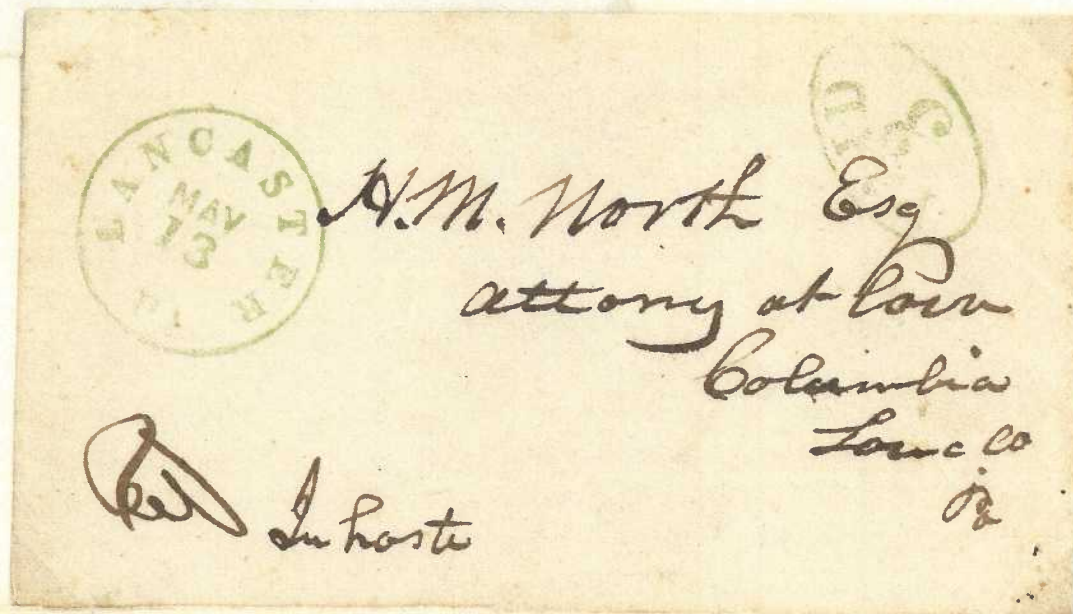 LANCASTER Pa
MAY
13
H. M. North Esq
attorny at law
Columbia
Lanc Co
Pa
In haste